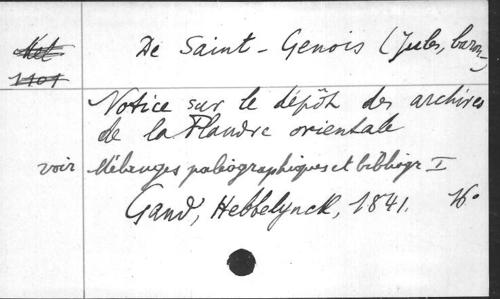 De Saint-Genois (Jules, baron)
1101
Notice sur le dépôt des archives
de la Flandre orientale
voir Mélanges paléographiques et bibliogr I
Gand, Hebbelynck, 1841. 16°